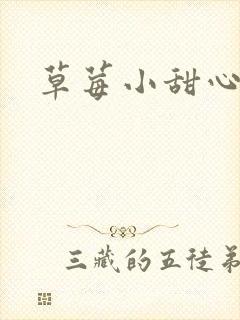 草莓小甜心
三藏的五徒弟